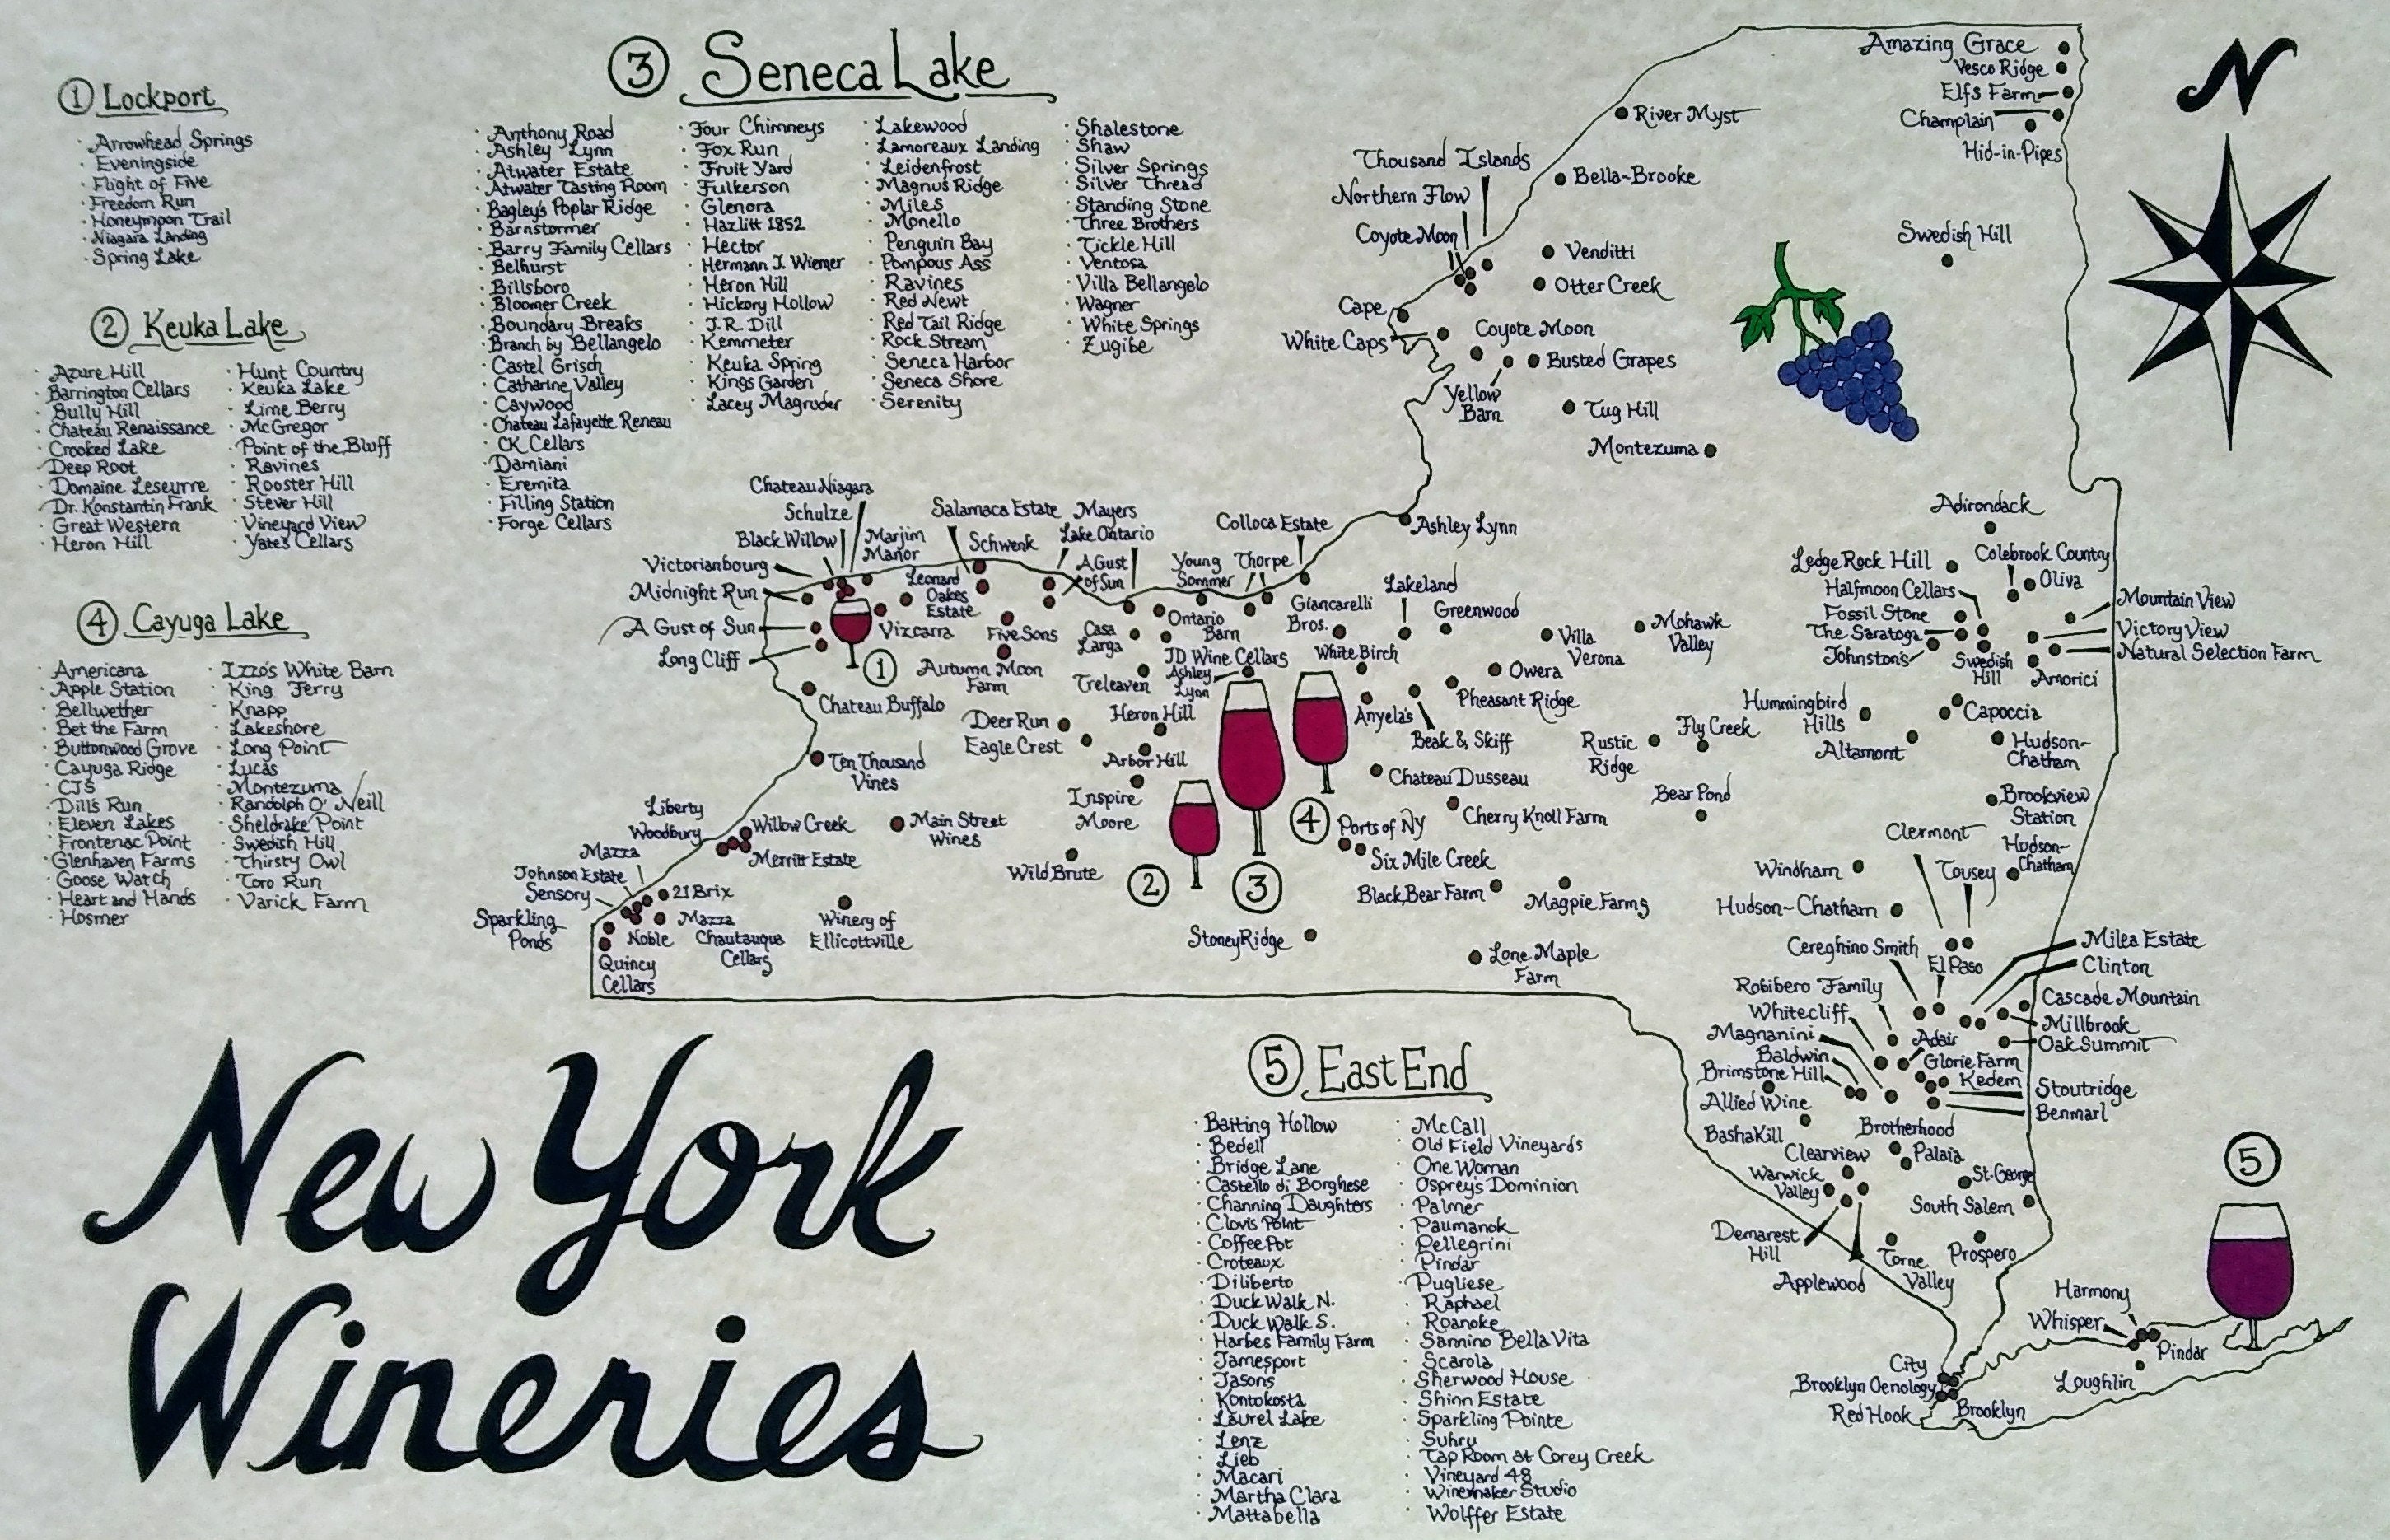 ① Lockport
· Arrowhead Springs
· Eveningside
· Flight of Five
· Freedom Run
· Honeymoon Trail
· Niagara Landing
· Spring Lake
② Keuka Lake
· Azure Hill
· Barrington Cellars
· Bully Hill
· Chateau Renaissance
· Crooked Lake
· Deep Root
· Domaine Leseurre
· Dr. Konstantin Frank
· Great Western
· Heron Hill
· Hunt Country
· Keuka Lake
· Lime Berry
· McGregor
· Point of the Bluff
· Ravines
· Rooster Hill
· Stever Hill
· Vineyard View
· Yates Cellars
④ Cayuga Lake
· Americana
· Apple Station
· Bellwether
· Bet the Farm
· Buttonwood Grove
· Cayuga Ridge
· CJS
· Dill's Run
· Eleven Lakes
· Frontenac Point
· Glenhaven Farms
· Goose Watch
· Heart and Hands
· Hosmer
· Izzo's White Barn
· King Ferry
· Knapp
· Lakeshore
· Long Point
· Lucas
· Montezuma
· Randolph O'Neill
· Sheldrake Point
· Swedish Hill
· Thirsty Owl
· Toro Run
· Varick Farm
③ Seneca Lake
· Anthony Road
· Ashley Lynn
· Atwater Estate
· Atwater Tasting Room
· Bagley's Poplar Ridge
· Barnstormer
· Barry Family Cellars
· Belhurst
· Billsboro
· Bloomer Creek
· Boundary Breaks
· Branch by Bellangelo
· Castel Grisch
· Catharine Valley
· Caywood
· Chateau Lafayette Reneau
· CK Cellars
· Damiani
· Eremita
· Filling Station
· Forge Cellars
· Four Chimneys
· Fox Run
· Fruit Yard
· Fulkerson
· Glenora
· Hazlitt 1852
· Hector
· Hermann J. Wiemer
· Heron Hill
· Hickory Hollow
· J.R. Dill
· Kemmeter
· Keuka Spring
· Kings Garden
· Lacey Magruder
· Lakewood
· Lamoreaux Landing
· Leidenfrost
· Magnus Ridge
· Miles
· Monello
· Penguin Bay
· Pompous Ass
· Ravines
· Red Newt
· Red Tail Ridge
· Rock Stream
· Seneca Harbor
· Seneca Shore
· Serenity
· Shalestone
· Shaw
· Silver Springs
· Silver Thread
· Standing Stone
· Three Brothers
· Tickle Hill
· Ventosa
· Villa Bellangelo
· Wagner
· White Springs
· Zugibe
Amazing Grace
Vesco Ridge
Elfs Farm
Champlain
Hid-in-Pipes
N
River Myst
Thousand Islands
Northern Flow
Bella-Brooke
Coyote Moon
Venditti
Swedish Hill
Otter Creek
Cape
White Caps
Coyote Moon
Busted Grapes
Yellow
Barn
Tug Hill
Montezuma
Chateau Niagara
Schulze
Black Willow
Marjim
Manor
Victorianbourg
Midnight Run
A Gust of Sun
Long Cliff
Leonard
Oakes
Estate
Vizcarra
①
Salamaca Estate
Schwenk
Mayers
Lake Ontario
A Gust
of Sun
Five Sons
Autumn Moon
Farm
Casa
Larga
Young
Sommer
Thorpe
Colloca Estate
Ashley Lynn
Ontario
Barn
JD Wine Cellars
Ashley
Lynn
Treleaven
Giancarelli
Bros.
White Birch
Lakeland
Greenwood
Villa
Verona
Mohawk
Valley
Owera
Pheasant Ridge
Anyela's
Beak & Skiff
Chateau Buffalo
Ten Thousand
Vines
Deer Run
Eagle Crest
Heron Hill
Arbor Hill
Inspire
Moore
Wild Brute
②
③
④
Chateau Dusseau
Cherry Knoll Farm
Ports of NY
Six Mile Creek
Black Bear Farm
Magpie Farms
Stoney Ridge
Lone Maple
Farm
Rustic
Ridge
Fly Creek
Bear Pond
Liberty
Woodbury
Willow Creek
Merritt Estate
Main Street
Wines
Mazza
Johnson Estate
Sensory
21 Brix
Sparkling
Ponds
Noble
Mazza
Chautauqua
Cellars
Quincy
Cellars
Winery of
Ellicottville
Adirondack
Ledge Rock Hill
Colebrook Country
Halfmoon Cellars
Oliva
Fossil Stone
The Saratoga
Johnston's
Swedish
Hill
Mountain View
Victory View
Natural Selection Farm
Amorici
Hummingbird
Hills
Capoccia
Altamont
Hudson-
Chatham
Brookview
Station
Clermont
Tousey
Hudson-
Chatham
Windham
Hudson-Chatham
Cereghino Smith
El Paso
Milea Estate
Clinton
Robibero Family
Cascade Mountain
Whitecliff
Millbrook
Magnanini
Adair
Oak Summit
Baldwin
Glorie Farm
Brimstone Hill
Kedem
Stoutridge
Allied Wine
Benmarl
BashaKill
Brotherhood
Clearview
Palaia
Warwick
Valley
St. George
South Salem
Demarest
Hill
Applewood
Torne
Valley
Prospero
⑤
Harmony
Whisper
Pindar
Loughlin
City
Brooklyn Oenology
Red Hook
Brooklyn
⑤ East End
· Baiting Hollow
· Bedell
· Bridge Lane
· Castello di Borghese
· Channing Daughters
· Clovis Point
· Coffee Pot
· Croteaux
· Diliberto
· Duck Walk N.
· Duck Walk S.
· Harbes Family Farm
· Jamesport
· Jasons
· Kontokosta
· Laurel Lake
· Lenz
· Lieb
· Macari
· Martha Clara
· Mattabella
· McCall
· Old Field Vineyards
· One Woman
· Osprey's Dominion
· Palmer
· Paumanok
· Pellegrini
· Pindar
· Pugliese
· Raphael
· Roanoke
· Sannino Bella Vita
· Scarola
· Sherwood House
· Shinn Estate
· Sparkling Pointe
· Suhru
· Tap Room at Corey Creek
· Vineyard 48
· Winemaker Studio
· Wolffer Estate
New York
Wineries